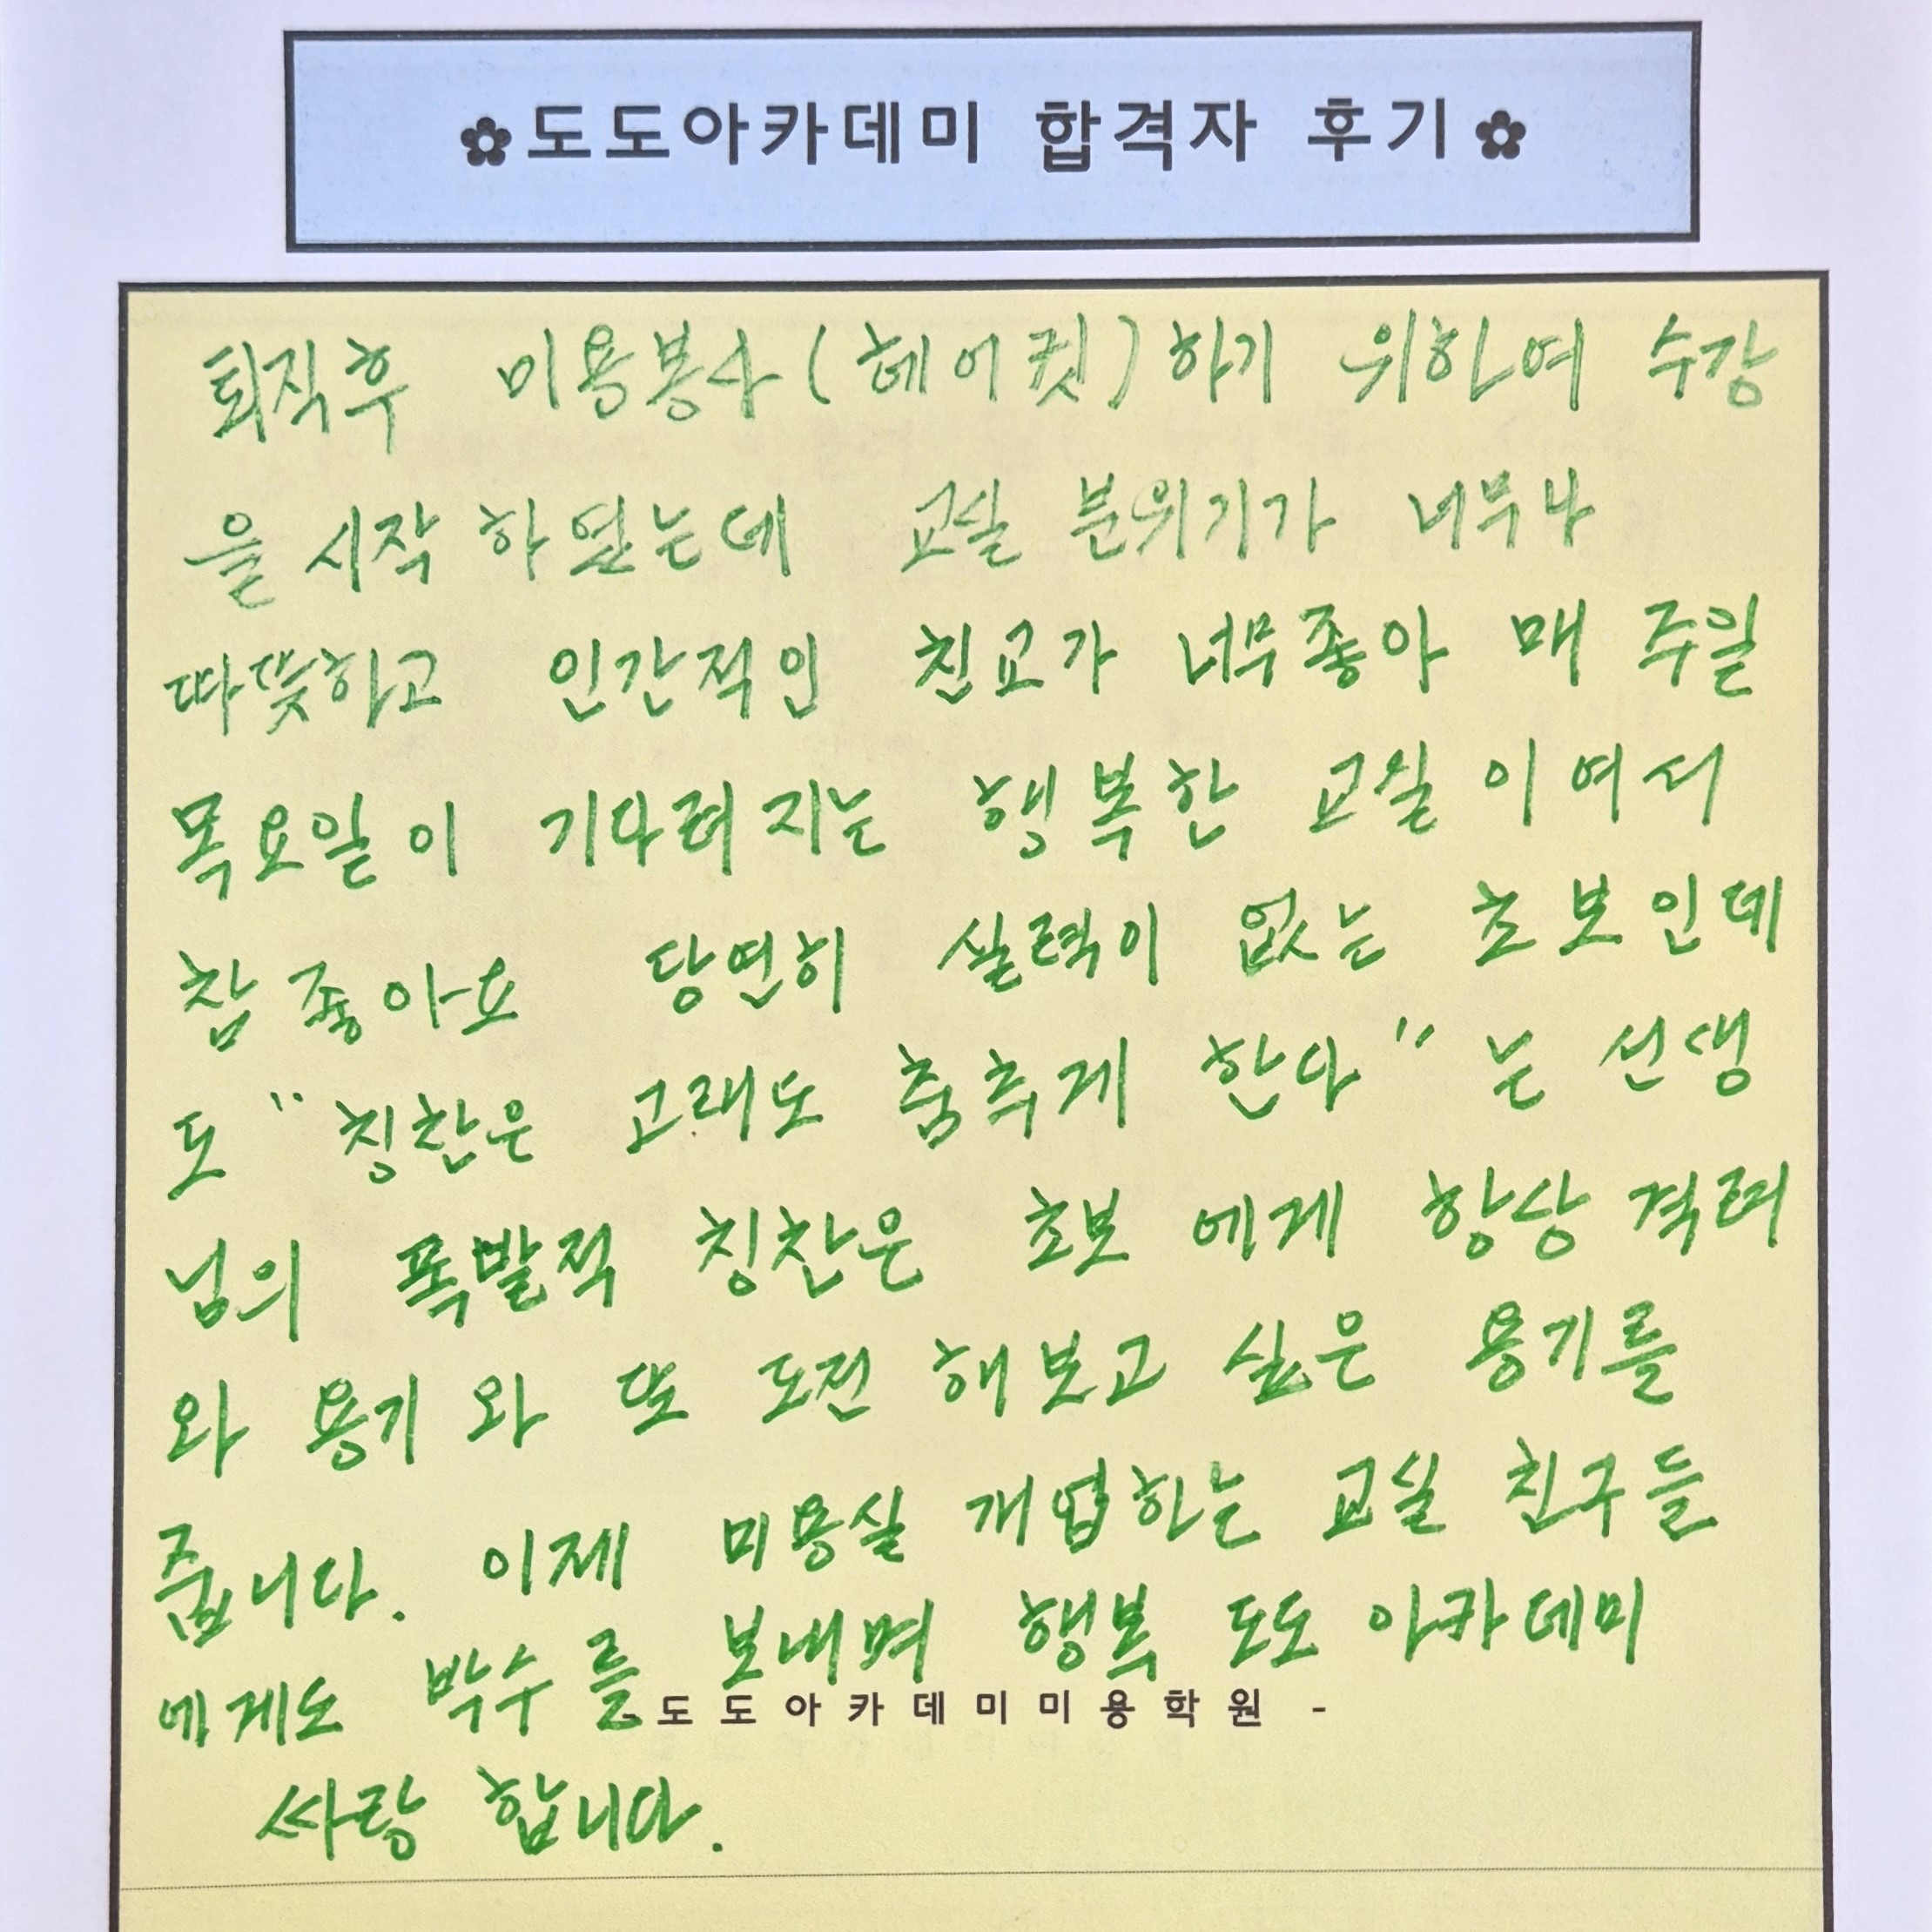 ✿도도아카데미 합격자 후기✿
퇴직후 미용봉사(헤어컷)하기 위하여 수강
을 시작 하였는데 교실 분위기가 너무나
따뜻하고 인간적인 친교가 너무좋아 매 주일
목요일이 기다려지는 행복한 교실 이여서
참 좋아요 당연히 실력이 없는 초보인데
도 "칭찬은 고래도 춤추게 한다" 는 선생
님의 폭발적 칭찬은 초보 에게 항상 격려
와 용기 와 또 도전 해보고 싶은 용기를
줍니다. 이제 미용실 개업하는 교실 친구들
에게도 박수를 보내며 행복 도도 아카데미
도도아카데미미용학원 -
싸랑 합니다.